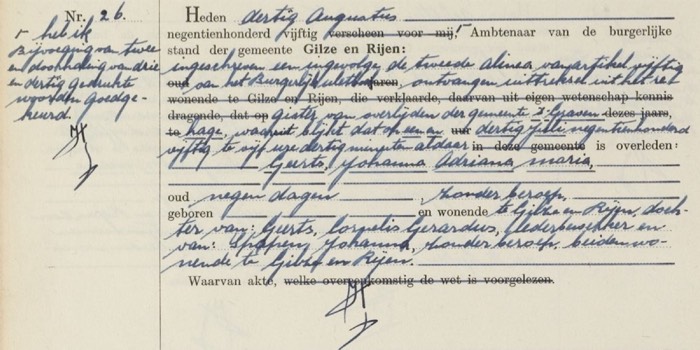 Nr. 26.
┌ heb ik
Bijvoeging van twee
en doorhaling van drie
en dertig gedrukte
woorden goedge-
keurd.
Heden dertig Augustus
negentienhonderd vijftig verscheen voor mij, ┌ Ambtenaar van de burgerlijke
stand der gemeente Gilze en Rijen:
ingeschreven een ingevolge de tweede alinea van artikel vijftig
oud van het Burgerlijk wetboek jaren, ontvangen uittreksel uit het re-
wonende te Gilze en Rijen, die verklaarde, daarvan uit eigen wetenschap kennis
dragende, dat op gister van overlijden der gemeente 's-Graven- dezes jaars,
te hage, waaruit blijkt dat op een en uur dertig Juli negentienhonderd
vijftig te vijf ure dertig minuten aldaar in deze gemeente is overleden:
Geerts, Johanna Adriana Maria,
oud negen dagen, zonder beroep,
geboren en wonende te Gilze en Rijen, doch-
ter van: Geerts, Cornelis Gerardus, lederbewerker en
van: Johanna, zonder beroep, beiden wo-
nende te Gilze en Rijen.
Waarvan akte, welke overeenkomstig de wet is voorgelezen.